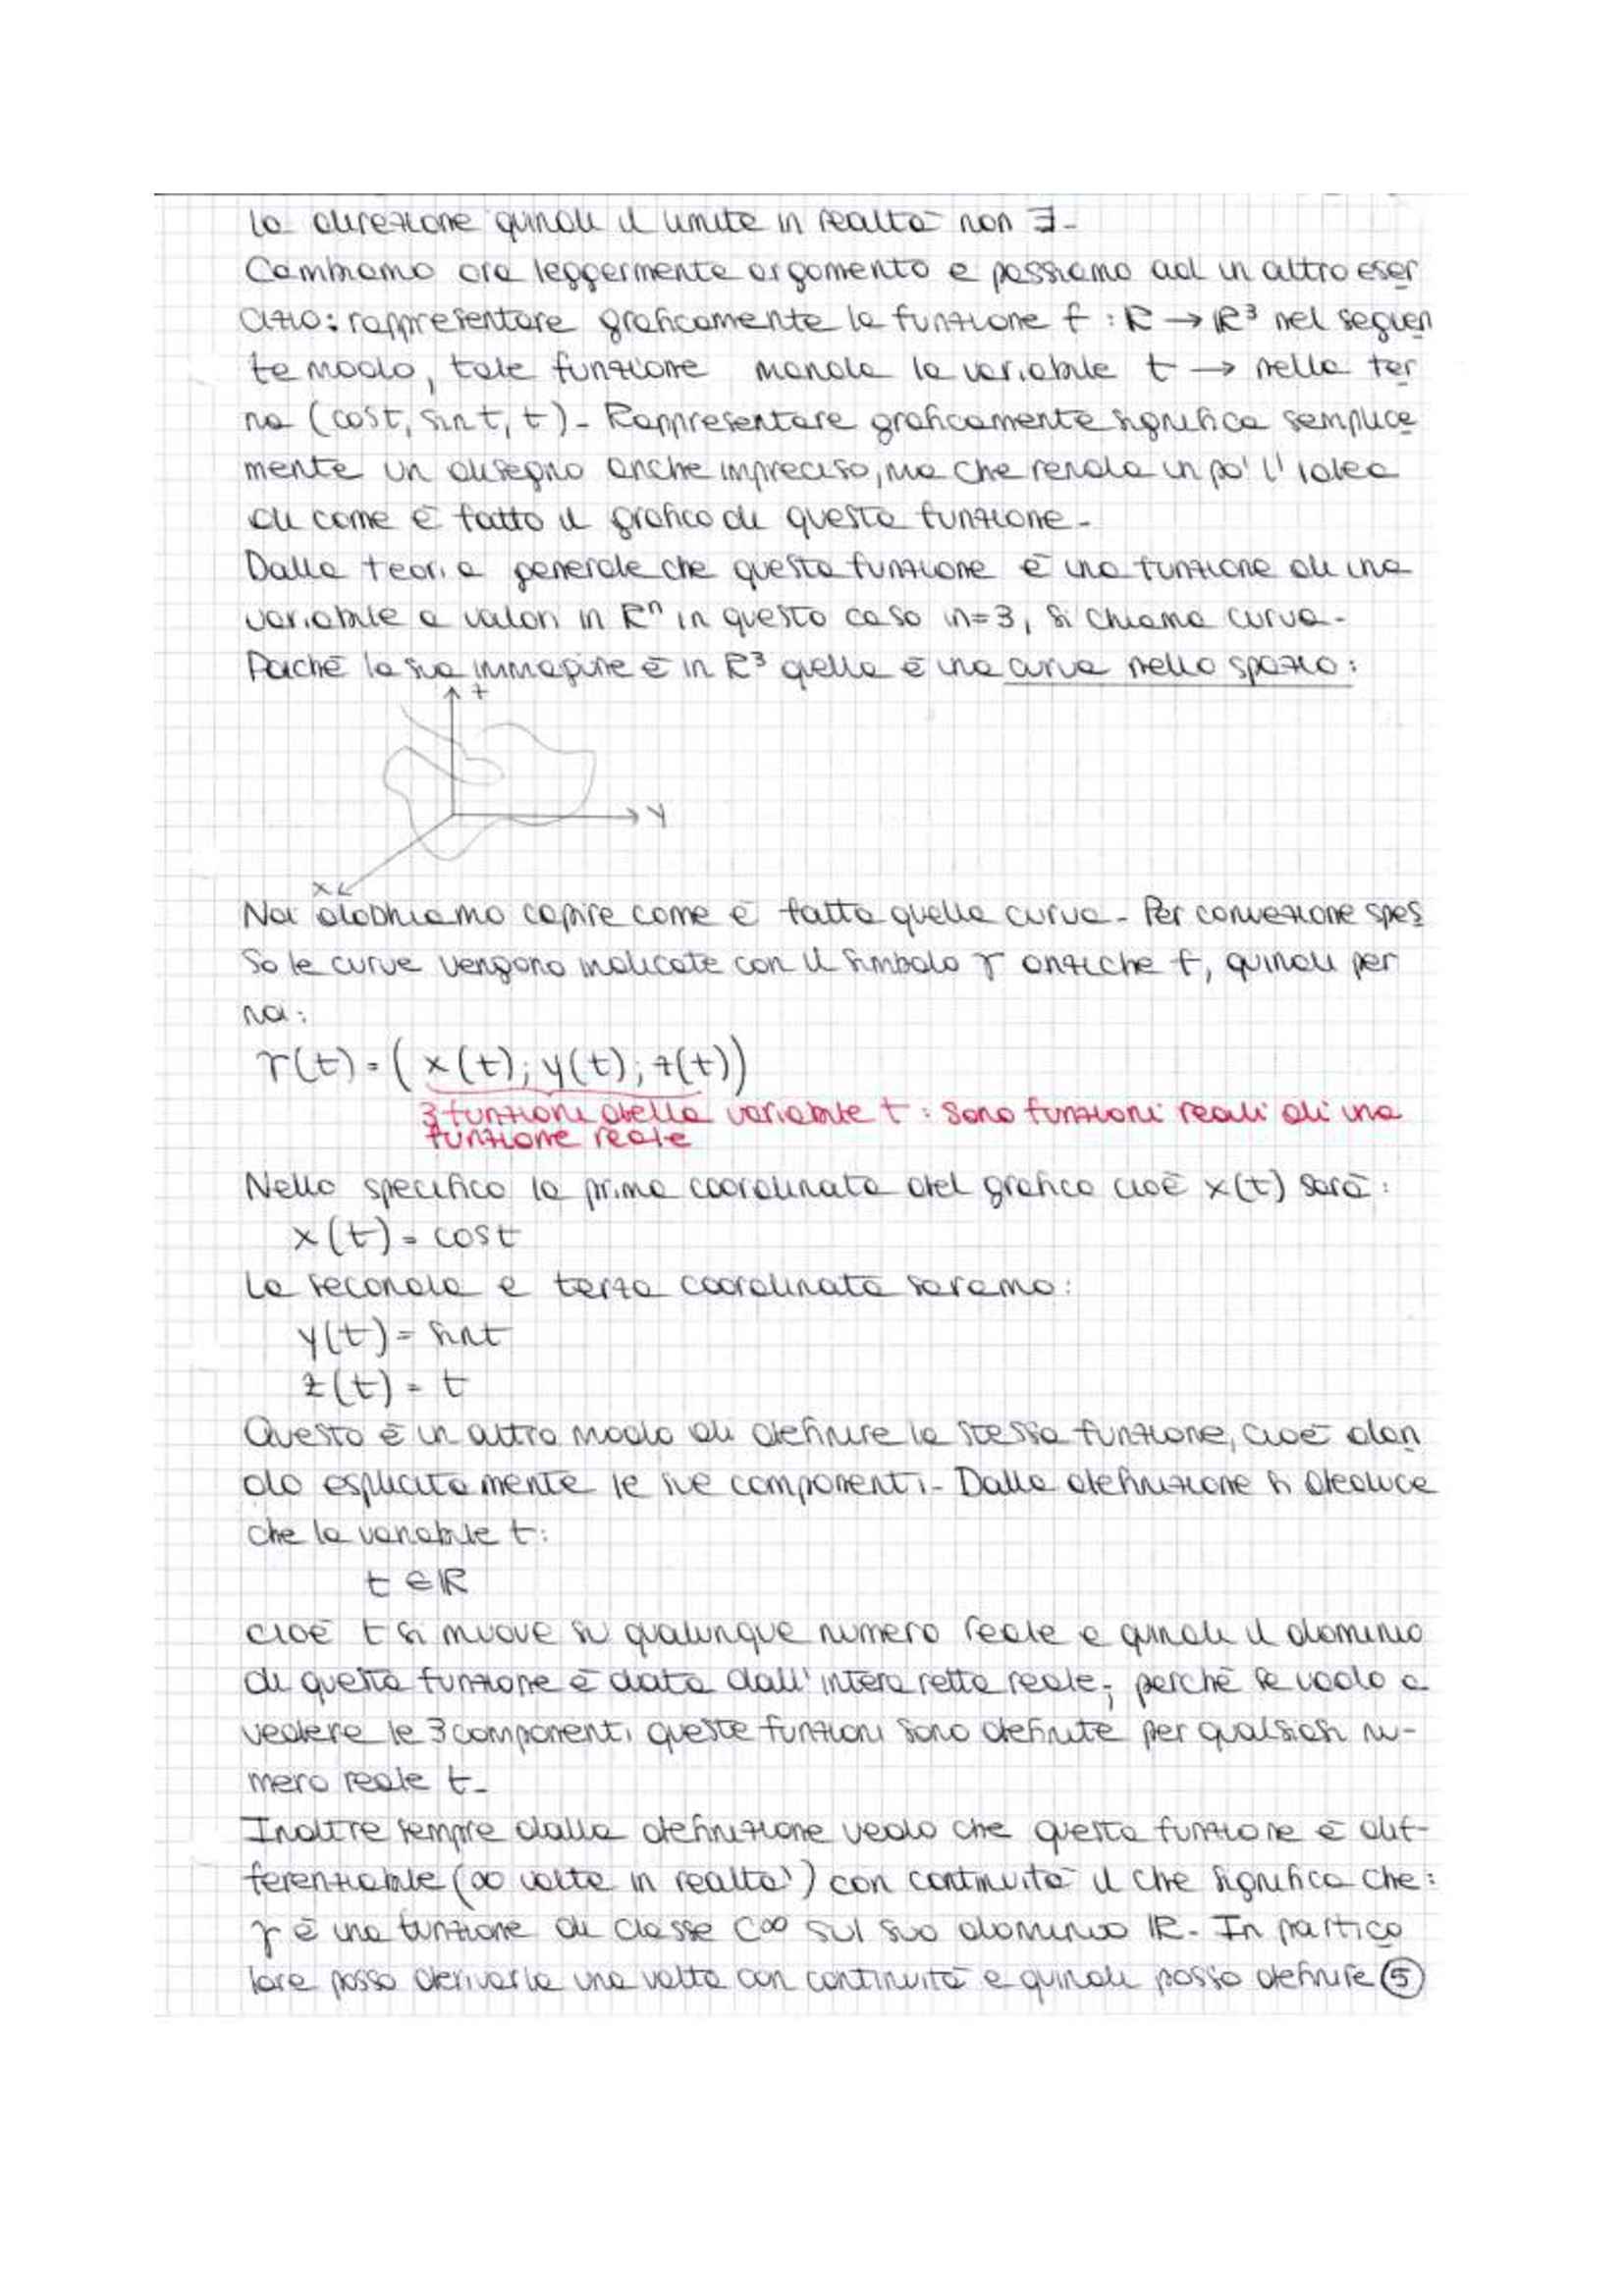 la direzione quindi il limite in realtà non ∃-
Cambiamo ora leggermente argomento e passiamo ad un altro eser
cizio: rappresentare graficamente la funzione f : R → R³ nel seguen
te modo, tale funzione manda la variabile t → nella ter
na (cost, sint, t)- Rappresentare graficamente significa semplice
mente un disegno anche impreciso, ma che renda un po' l'idea
di come è fatto il grafico di questa funzione-
Dalla teoria generale che questa funzione è una funzione di una
variabile a valori in Rⁿ in questo caso n=3, si chiama curva-
Poiché la sua immagine è in R³ quella è una curva nello spazio:
z
y
x
Noi dobbiamo capire come è fatta quella curva- Per convezione spes
so le curve vengono indicate con il simbolo γ anziche f, quindi per
noi:
γ(t) = ( x(t); y(t); z(t))
3 funzioni della variabile t : sono funzioni reali di una
funzione reale
Nello specifico la prima coordinata del grafico cioè x(t) sarà:
x(t) = cost
La seconda e terza coordinata saranno:
y(t) = sint
z(t) = t
Questo è un altro modo di definire la stessa funzione, cioè dan
do esplicitamente le sue componenti- Dalla definizione si deduce
che la variabile t:
t ∈ R
cioè t si muove su qualunque numero reale e quindi il dominio
di questa funzione è data dall'intera retta reale; perché se vado a
vedere le 3 componenti queste funzioni sono definite per qualsiasi nu-
mero reale t-
Inoltre sempre dalla definizione vedo che questa funzione è dif-
ferenziabile (∞ volte in realta') con continuità il che significa che:
γ è una funzione di classe C∞ sul suo dominio R- In partico
lare posso derivarla una volta con continuità e quindi posso definire 5